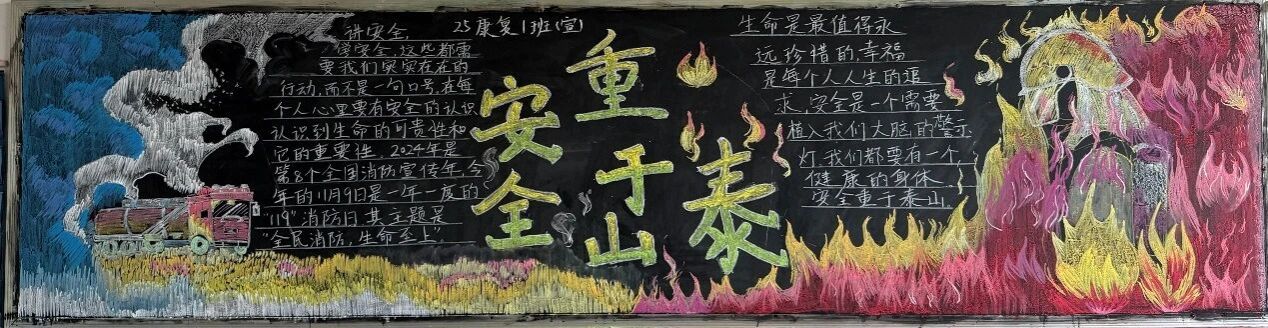 讲安全,
学安全,这些都需
要我们实实在在的
行动,而不是一句口号,在每
个人心里要有安全的认识
认识到生命的可贵性和
它的重要性。2024年是
第8个全国消防宣传年,今
年的11月9日是一年一度的
"119"消防日其主题是
"全民消防,生命至上".
25康复1班(宣)
安全
重于
泰山
生命是最值得永
远珍惜的,幸福
是每个人人生的追
求,安全是一个需要
植入我们大脑的警示
灯,我们都要有一个
健康的身体
安全重于泰山